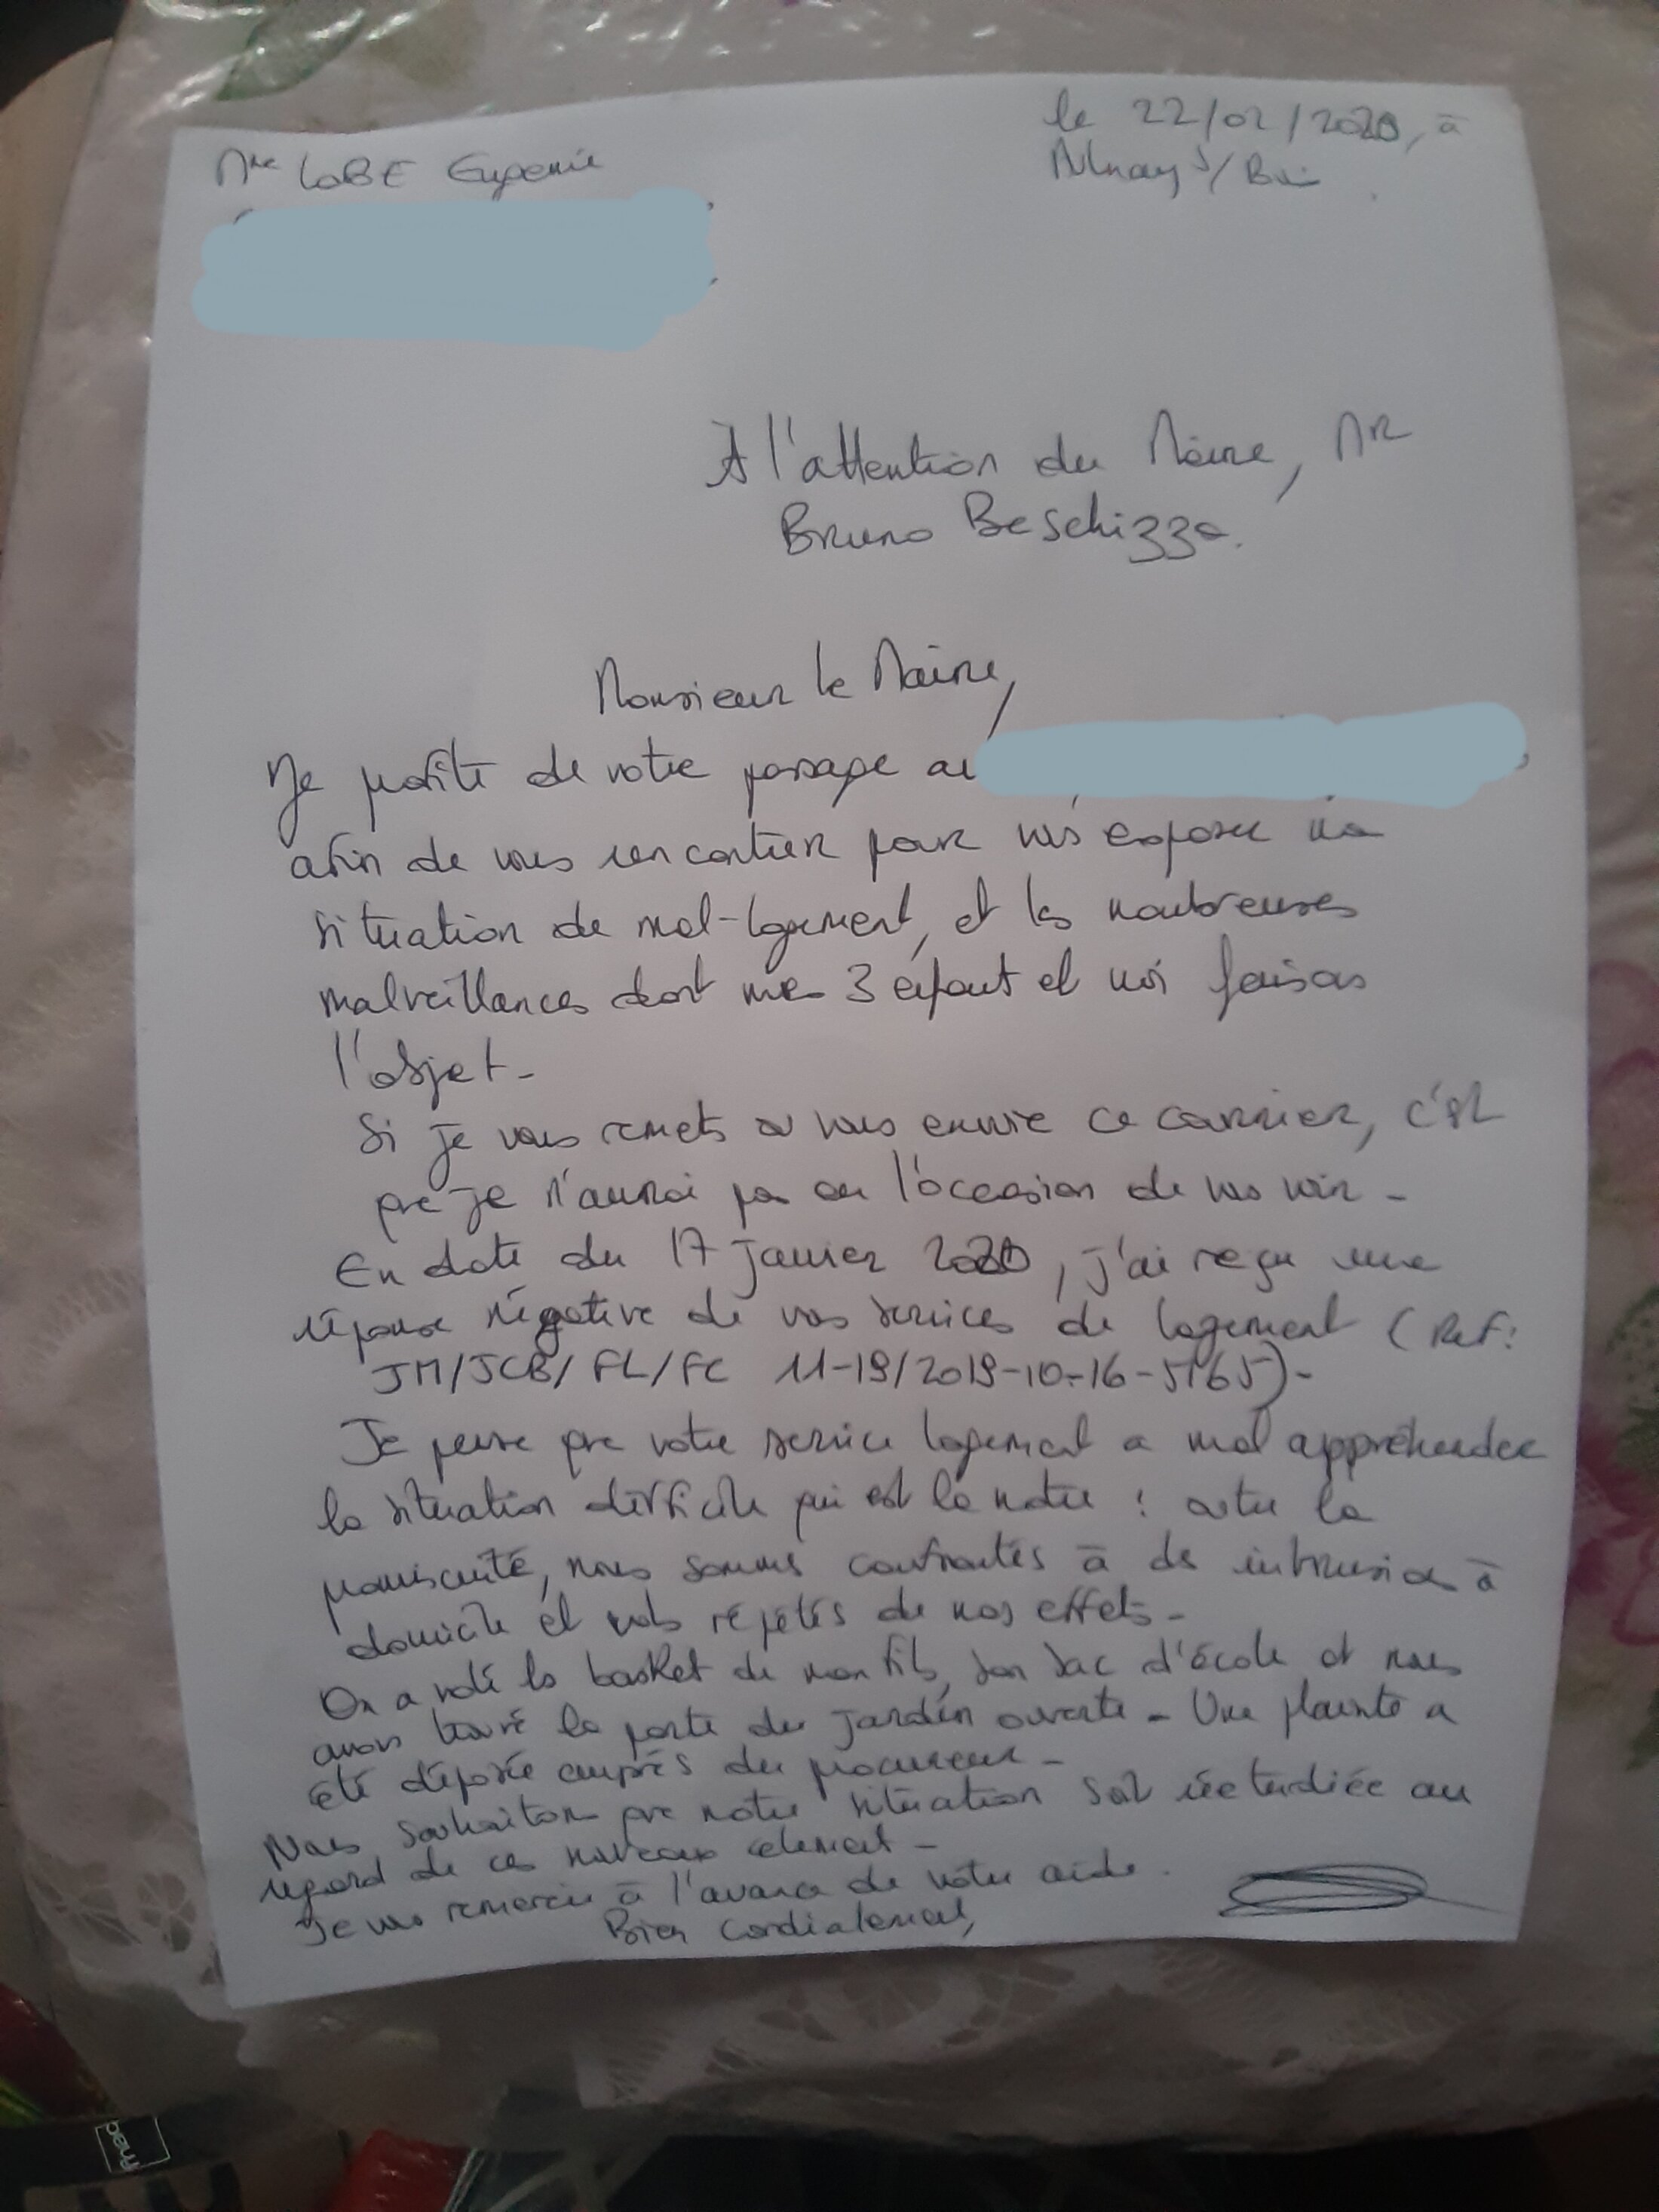 Mme LOBE Eugenie
le 22/02/2020, à
Aulnay s/ Bois
À l'attention du Maire, Mr
Bruno Beschizza.
Monsieur le Maire,
Je profite de votre passage au
afin de vous rencontrer pour vous exposer ma
situation de mal-logement, et les nombreuses
malveillances dont mes 3 enfant et moi faisons
l'objet-
Si je vous remets ou vous envoie ce courrier, c'est
que je n'aurai pas eu l'occasion de vous voir -
En date du 17 janvier 2020, j'ai reçu une
réponse négative de vos services de logement (Ref:
JM/JCB/FL/FC 11-19/2019-10-16-5765)-
Je pense que votre service logement a mal appréhendée
la situation difficile qui est la notre : outre la
promiscuité, nous sommes confrontés à des intrusions à
domicile et vols répétés de nos effets-
On a volé les basket de mon fils, son sac d'école et nous
avons trouvé la porte du jardin ouverte - Une plainte a
été déposée auprès du procureur -
Nous souhaitons que notre situation soit réétudiée au
regard de ces nouveaux élement -
Je vous remercie à l'avance de votre aide.
Bien Cordialement,
fnac